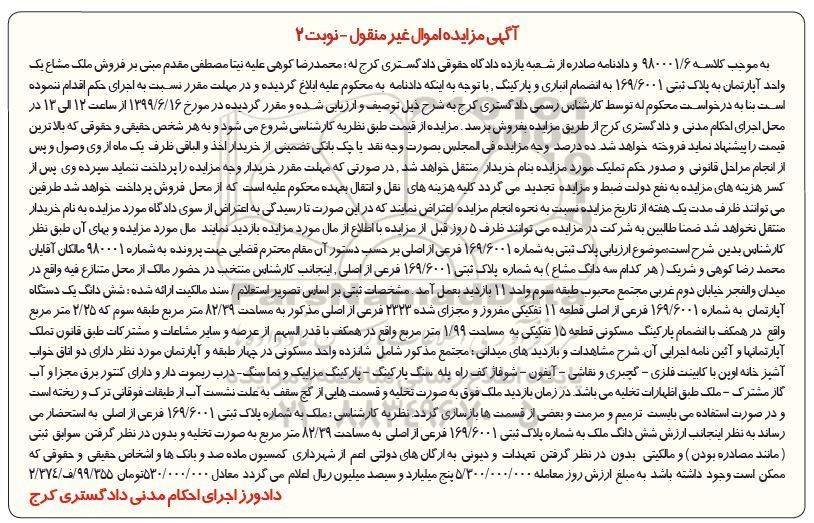 آگهی مزایده اموال غیر منقول - نوبت ۲
به موجب کلاسه ۹۸۰۰۰۱/۶ و دادنامه صادره از شعبه یازده دادگاه حقوقی دادگستری کرج له : محمدرضا کوهی علیه نیتا مصطفی مقدم مبنی بر فروش ملک مشاع یک
واحد آپارتمان به پلاک ثبتی ۱۶۹/۶۰۰۱ به انضمام انباری و پارکینگ , با توجه به اینکه دادنامه به محکوم علیه ابلاغ گردیده و در مهلت مقرر نسبت به اجرای حکم اقدام ننموده
است بنا به درخواست محکوم له توسط کارشناس رسمی دادگستری کرج به شرح ذیل توصیف و ارزیابی شده و مقرر گردیده در مورخ ۱۳۹۹/۶/۱۶ از ساعت ۱۲ الی ۱۳ در
محل اجرای احکام مدنی و دادگستری کرج از طریق مزایده بفروش برسد . مزایده از قیمت طبق نظریه کارشناسی شروع می شود و به هر شخص حقیقی و حقوقی که بالاترین
قیمت را پیشنهاد نماید فروخته خواهد شد. ده درصد وجه مزایده فی المجلس بصورت وجه نقد یا چک بانکی تضمینی از خریدار اخذ و الباقی ظرف یک ماه از وی وصول و پس
از انجام مراحل قانونی و صدور حکم تملیک مورد مزایده بنام خریدار منتقل خواهد شد , در صورتی که مهلت مقرر خریدار وجه مزایده را پرداخت ننماید سپرده وی پس از
کسر هزینه های مزایده به نفع دولت ضبط و مزایده تجدید می گردد کلیه هزینه های نقل و انتقال بعهده محکوم علیه است که از محل فروش پرداخت خواهد شد طرفین
می توانند ظرف مدت یک هفته از تاریخ مزایده نسبت به نحوه انجام مزایده اعتراض نمایند که در این صورت تا رسیدگی به اعتراض از سوی دادگاه مورد مزایده به نام خریدار
منتقل نخواهد شد ضمنا طالبین به شرکت در مزایده می توانند ظرف ۵ روز قبل از مزایده با اطلاع از مال مورد مزایده بازدید نمایند مال مورد مزایده و بهای آن طبق نظر
کارشناس بدین شرح است:موضوع ارزیابی پلاک ثبتی به شماره ۱۶۹/۶۰۰۱ فرعی از اصلی بر حسب دستور آن مقام محترم قضایی جهت پرونده به شماره ۹۸۰۰۰۱ مالکان آقایان
محمد رضا کوهی و شریک ( هر کدام سه دانگ مشاع ) به شماره پلاک ثبتی ۱۶۹/۶۰۰۱ فرعی از اصلی , اینجانب کارشناس منتخب در حضور مالک از محل متنازع فیه واقع در
میدان والفجر خیابان دوم غربی مجتمع محبوب طبقه سوم واحد ۱۱ بازدید بعمل آمد. مشخصات ثبتی بر اساس تصویر استعلام / سند مالکیت ارائه شده : شش دانگ یک دستگاه
آپارتمان به شماره ۱۶۹/۶۰۰۱ فرعی از اصلی قطعه ۱۱ تفکیکی مفروز و مجزای شده ۲۳۲۳ فرعی از اصلی مذکور به مساحت ۸۲/۳۹ متر مربع طبقه سوم که ۲/۲۵ متر مربع
واقع در همکف با انضمام پارکینگ مسکونی قطعه ۱۵ تفکیکی به مساحت ۱/۹۹ متر مربع واقع در همکف با قدر السهم از عرصه و سایر مشاعات و مشترکات طبق قانون تملک
آپارتمانها و آئین نامه اجرایی آن. شرح مشاهدات و بازدید های میدانی : مجتمع مذکور شامل شانزده واحد مسکونی در چهار طبقه و آپارتمان مورد نظر دارای دو اتاق خواب
آشپز خانه اوپن با کابینت فلزی - گچبری و نقاشی - آیفون - شوفاژ کف راه پله سنگ پارکینگ - پارکینگ مزاییک و نما سنگ- درب ریموت دار و دارای کنتور برق مجزا و آب
گاز مشترک - ملک طبق اظهارات تخلیه می باشد. در زمان بازدید ملک فوق به صورت تخلیه و قسمت هایی از گچ سقف به علت نشست آب از طبقات فوقانی ترک و ریخته است
و در صورت استفاده می بایست ترمیم و مرمت و بعضی از قسمت ها بازسازی گردد. نظریه کارشناسی : ملک به شماره پلاک ثبتی ۱۶۹/۶۰۰۱ فرعی از اصلی به استحضار می
رساند به نظر اینجانب ارزش شش دانگ ملک به شماره پلاک ثبتی ۱۶۹/۶۰۰۱ فرعی از اصلی به مساحت ۸۲/۳۹ متر مربع به صورت تخلیه و بدون در نظر گرفتن سوابق ثبتی
( مانند مصادره بودن ) و مالکیتی بدون در نظر گرفتن تعهدات و دیونی به ارگان های دولتی اعم از شهرداری کمسیون ماده صد و بانک ها و اشخاص حقیقی و حقوقی که
ممکن است وجود داشته باشد به مبلغ ارزش روز معامله ۵/۳۰۰/۰۰۰/۰۰۰ پنج میلیارد و سیصد میلیون ریال اعلام می گردد معادل ۵۳۰/۰۰۰/۰۰۰تومان ۹۹/۳۵۵/ف/۲/۳۷۴
دادورز اجرای احکام مدنی دادگستری کرج
ParsNamadData
۰۲۱-۸۸۳۴۹۶۷۰-۵